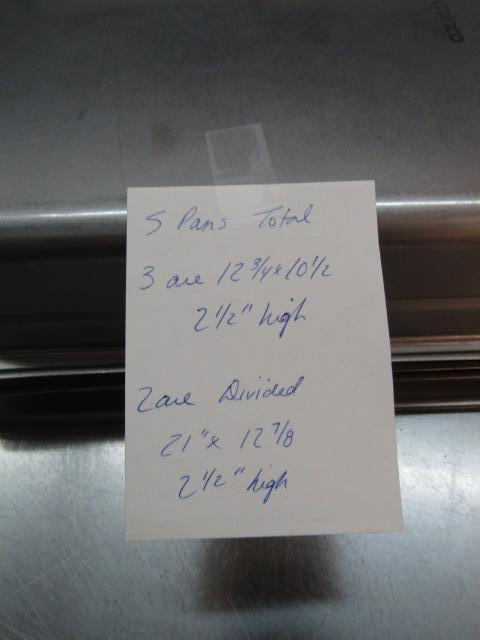 5 Pans Total
3 are 12 3/4 x 10 1/2
2 1/2" high
2 are Divided
21" x 12 7/8
2 1/2" high